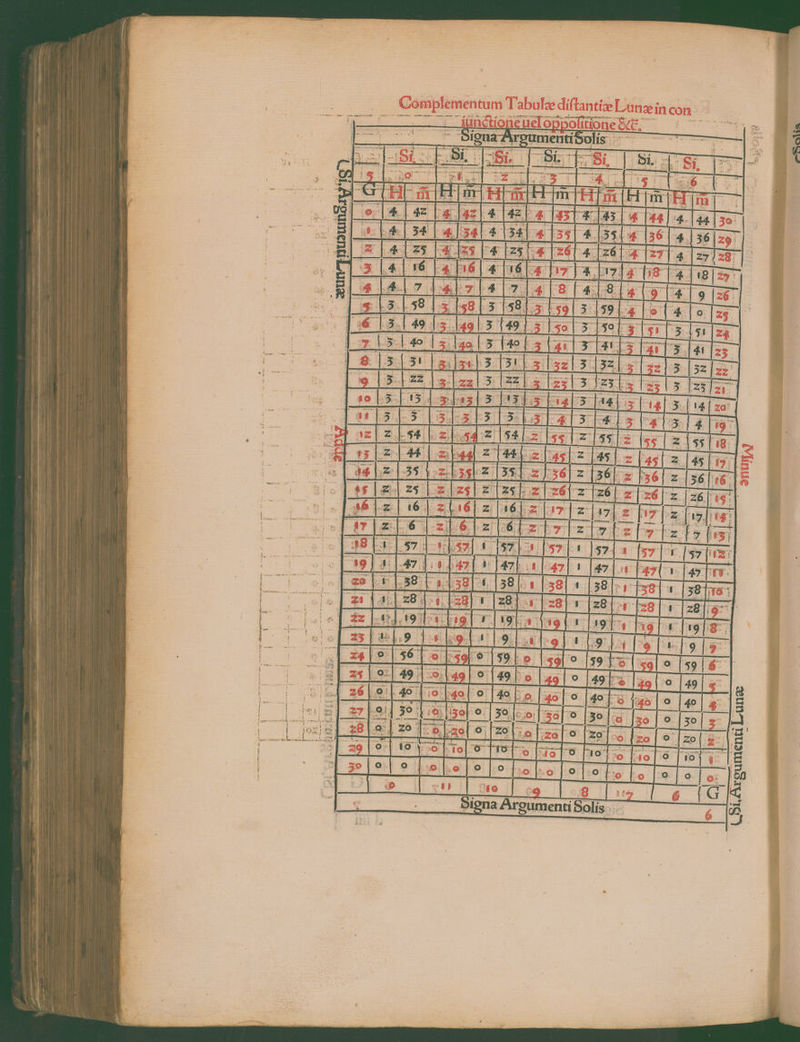 Complementum Tabulæ distantiæ Lunæ in con
iunctione uel oppositione &c.
Signa Argumenti Solis
Si. Si. Si. Si. Si. Si. Si.
5 0 1 2 3 4 5 6
G H m̄ H m̄ H m̄ H m̄ H m̄ H m̄ H m̄
Si. Argumenti Lunæ
Adde
0 4 42 4 42 4 42 4 43 4 43 4 44 4 44 30
1 4 34 4 34 4 34 4 35 4 35 4 36 4 36 29
2 4 25 4 25 4 25 4 26 4 26 4 27 4 27 28
3 4 16 4 16 4 16 4 17 4 17 4 18 4 18 27
4 4 7 4 7 4 7 4 8 4 8 4 9 4 9 26
5 3 58 3 58 3 58 3 59 3 59 4 0 4 0 25
6 3 49 3 49 3 49 3 50 3 50 3 51 3 51 24
7 3 40 3 40 3 40 3 41 3 41 3 41 3 41 23
8 3 31 3 31 3 31 3 32 3 32 3 32 3 32 22
9 3 22 3 22 3 22 3 23 3 23 3 23 3 23 21
10 3 13 3 13 3 13 3 14 3 14 3 14 3 14 20
11 3 3 3 3 3 3 3 4 3 4 3 4 3 4 19
12 2 54 2 54 2 54 2 55 2 55 2 55 2 55 18
13 2 44 2 44 2 44 2 45 2 45 2 45 2 45 17
14 2 35 2 35 2 35 2 36 2 36 2 36 2 36 16
15 2 25 2 25 2 25 2 26 2 26 2 26 2 26 15
16 2 16 2 16 2 16 2 17 2 17 2 17 2 17 14
17 2 6 2 6 2 6 2 7 2 7 2 7 2 7 13
18 1 57 1 57 1 57 1 57 1 57 1 57 1 57 12
19 1 47 1 47 1 47 1 47 1 47 1 47 1 47 11
20 1 38 1 38 1 38 1 38 1 38 1 38 1 38 10
21 1 28 1 28 1 28 1 28 1 28 1 28 1 28 9
22 1 19 1 19 1 19 1 19 1 19 1 19 1 19 8
23 1 9 1 9 1 9 1 9 1 9 1 9 1 9 7
24 0 56 0 59 0 59 0 59 0 59 0 59 0 59 6
25 0 49 0 49 0 49 0 49 0 49 0 49 0 49 5
26 0 40 0 40 0 40 0 40 0 40 0 40 0 40 4
27 0 30 0 30 0 30 0 30 0 30 0 30 0 30 3
28 0 20 0 20 0 20 0 20 0 20 0 20 0 20 2
29 0 10 0 10 0 10 0 10 0 10 0 10 0 10 1
30 0 0 0 0 0 0 0 0 0 0 0 0 0 0 0
Minue
Si. Argumenti Lunæ
0 11 10 9 8 7 6 G
Signa Argumenti Solis 6